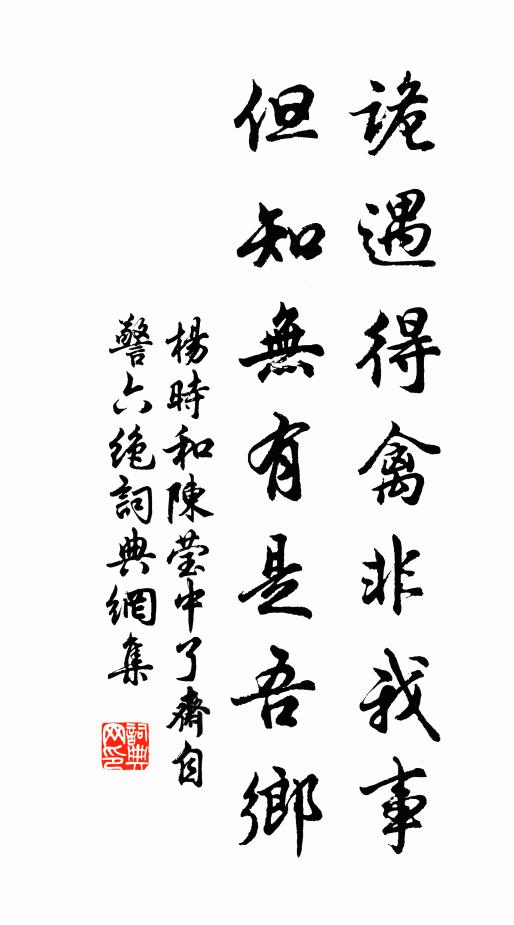 詭遇得禽非我事
但知無有是吾鄉
楊時和陳瑩中了齋自
警六絶詞典網集
詞典網印